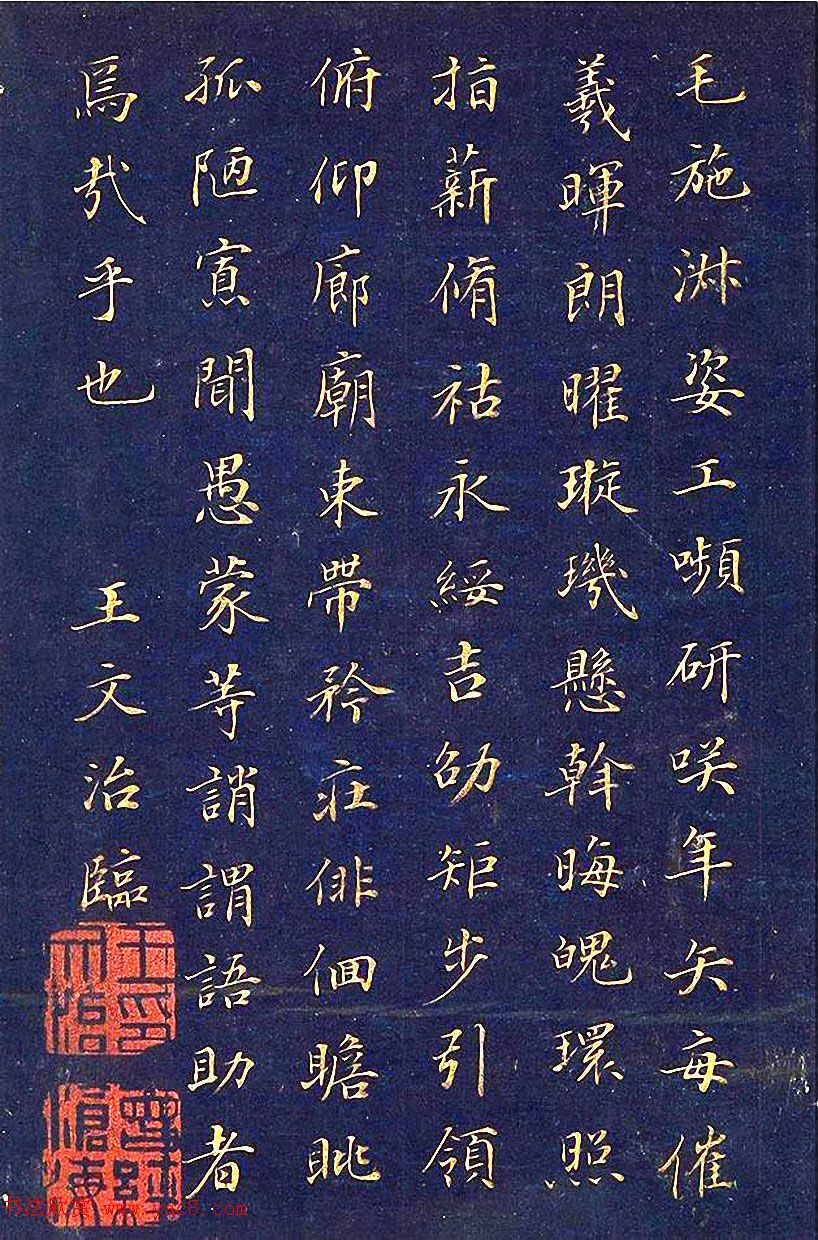 毛施淑姿工嚬研咲年矢每催
羲暉朗曜璇璣懸斡晦魄環照
指薪脩祜永綏吉劭矩步引領
俯仰廊廟束帶矜莊俳佪瞻眺
孤陋寡聞愚蒙等誚謂語助者
焉哉乎也 王文治臨
王印文治
曾經滄海
书法欣赏 www.yac8.com